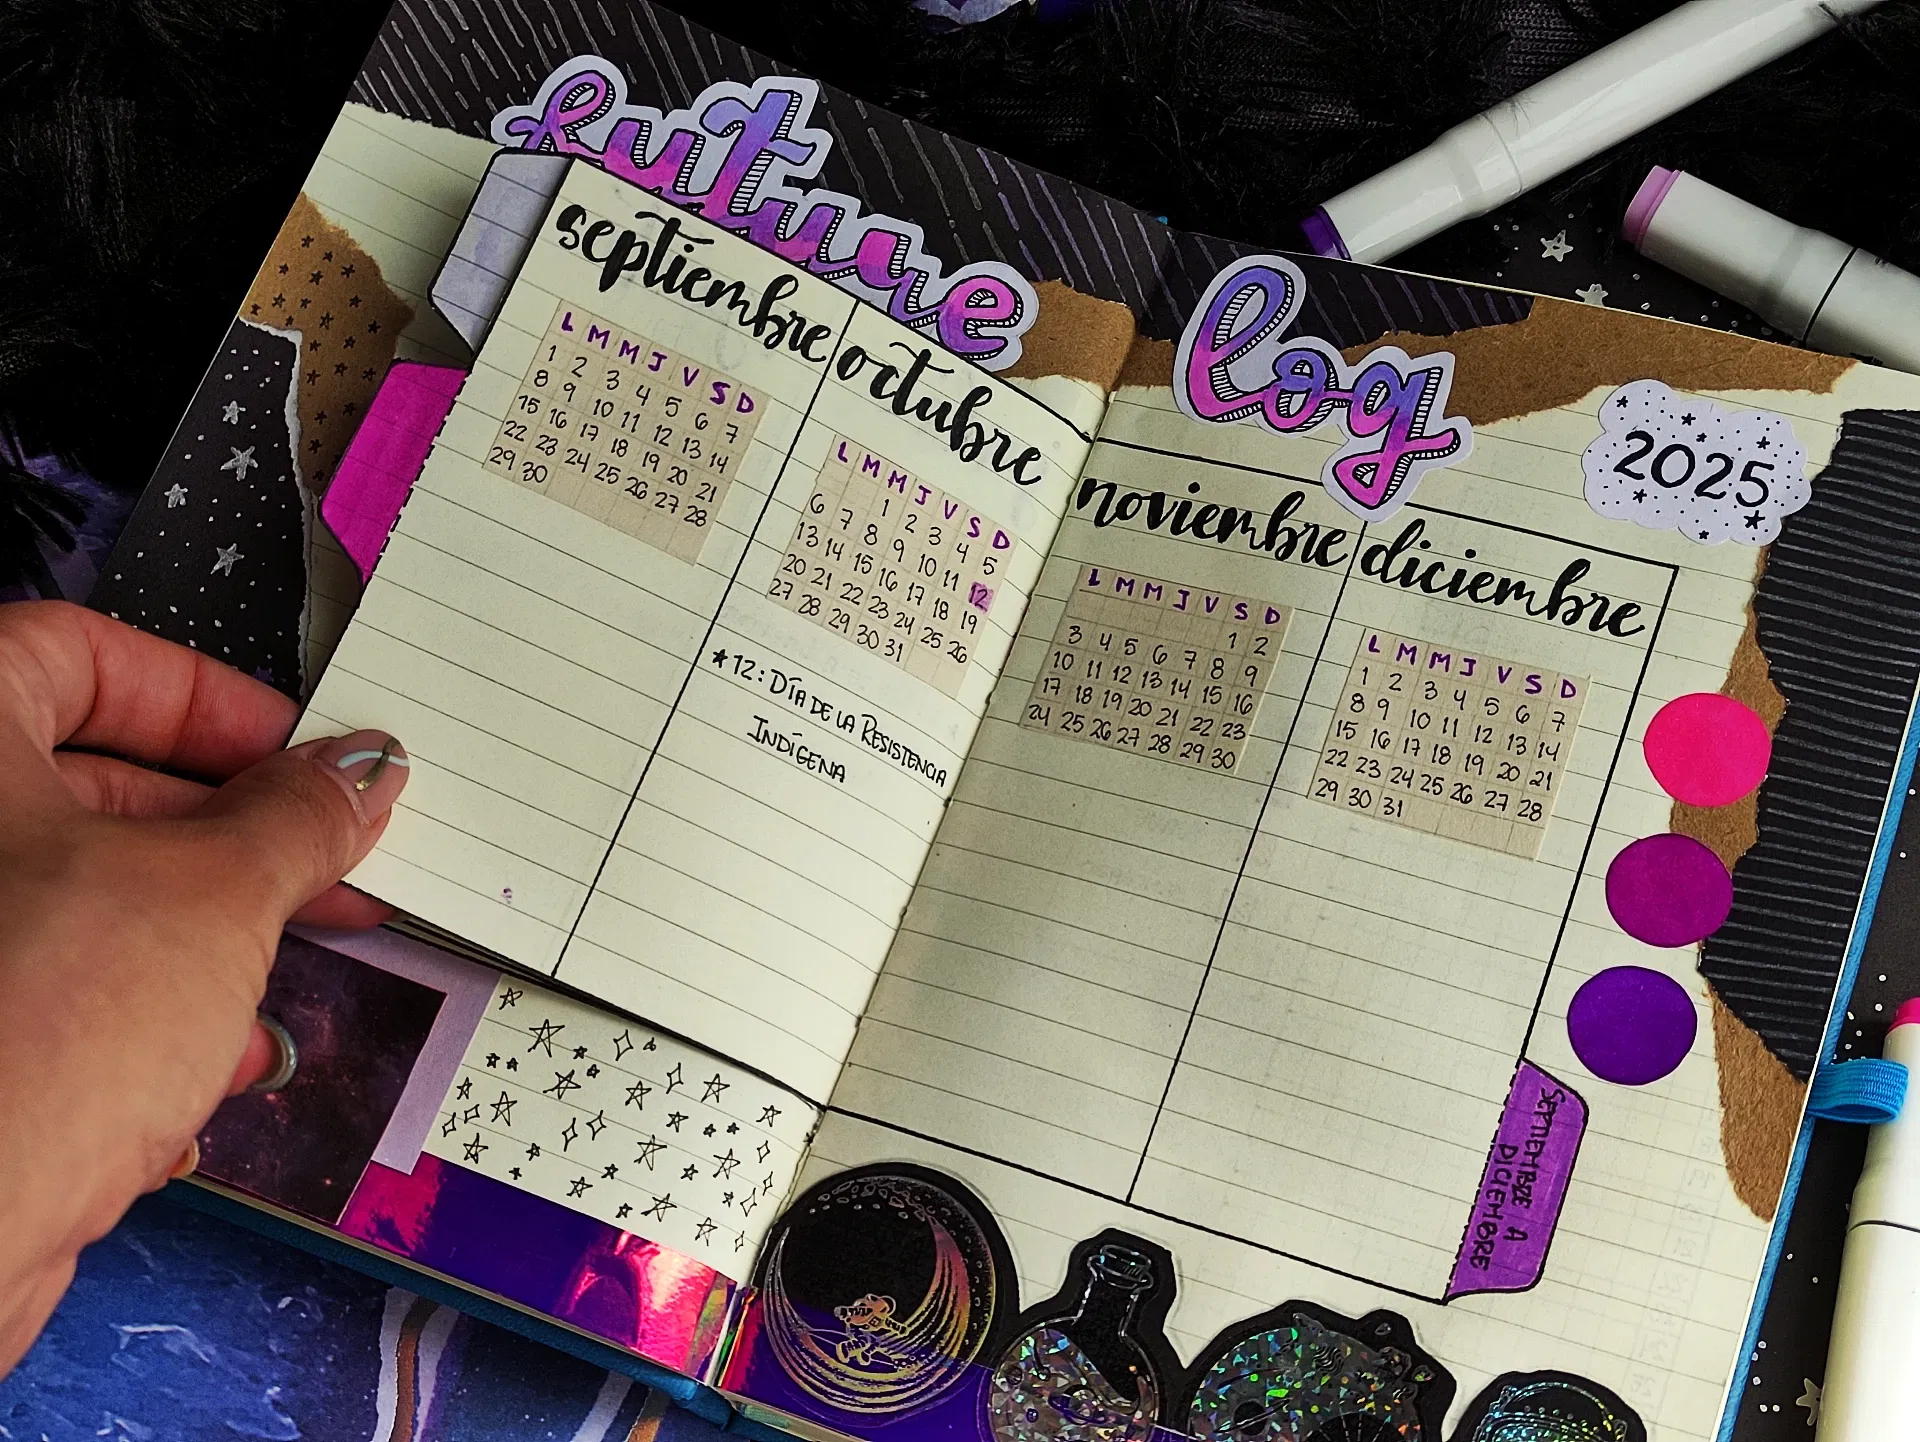 future
log
2025
septiembre
L M M J V S D
1 2 3 4 5 6 7
8 9 10 11 12 13 14
15 16 17 18 19 20 21
22 23 24 25 26 27 28
29 30
octubre
L M M J V S D
1 2 3 4 5
6 7 8 9 10 11 12
13 14 15 16 17 18 19
20 21 22 23 24 25 26
27 28 29 30 31
★12: DÍA DE LA RESISTENCIA
INDÍGENA
noviembre
L M M J V S D
1 2
3 4 5 6 7 8 9
10 11 12 13 14 15 16
17 18 19 20 21 22 23
24 25 26 27 28 29 30
diciembre
L M M J V S D
1 2 3 4 5 6 7
8 9 10 11 12 13 14
15 16 17 18 19 20 21
22 23 24 25 26 27 28
29 30 31
SEPTIEMBRE A
DICIEMBRE